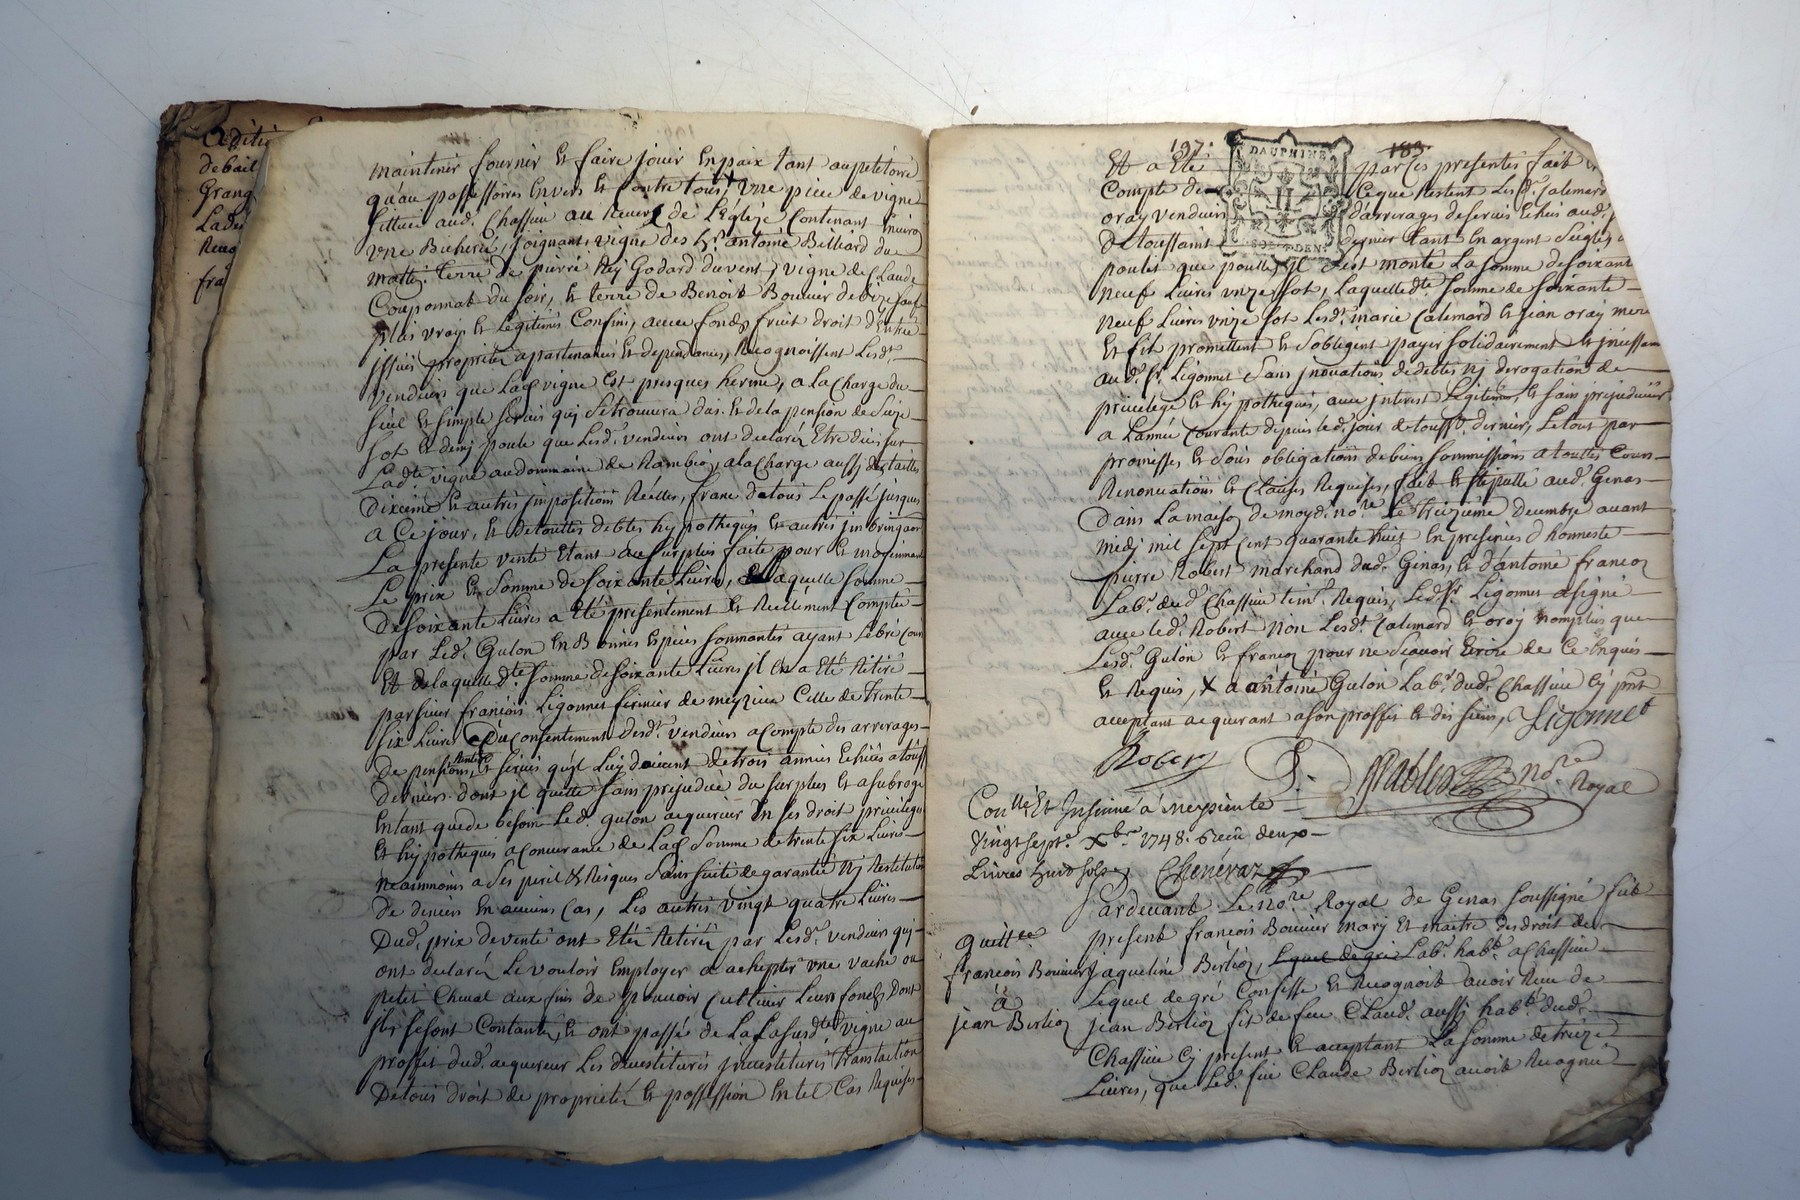 Aditi
de bail
Grang
Lade
Reco
fra
maintenir fournir et faire jouir en paix tant au petitoire
qu'au possessoires envers et contre tous, vne piece de vigne
sittuée aud. Chassieu au revers de L'Eglize Contenant Enuiron
vne Bicherée, Joignant, vigne des hrs antoine Billiard du
matin, Terre de pierre Rey Godard du vent, vigne de Claude
Couponnat du soir, et terre de Benoit Bouuier de bize sauf
plus vrays et Legitimes Confins, auec fonds fruit droit d'Entrée
issues proprietés apartenances et dependances, Recognoissent Lesdt.
vendeurs que Lad. vigne est presques herme, a La Charge du
seul et simple seruis quj se trouuera das. et de la pension de Seize
sot et demy poule que Lesd. vendeurs ont declarez Etre deüe sur
Ladte vigne au dommaine de Rambion, a la Charge aussy des tailles
Dixieme et autres jmpositions Réelles, franc de tous Le passé jusques
a Ce jour, et De touttes debtes hypotheques et autres
La presente vente Etant au surplus faite pour et moyennant
Le prix et Somme de soixante Liures, Laquelle somme
De soixante Liures a Eté presentement et Réellement Comptée
par Led. Gulon en Bonnes Espèces sonnantes ayant Lebre Cour
Et de laquelle dte somme de soixante Liures jl en a Eté Retiré
par sieur françois Ligonnet fermier de meyzieu Celle de trente
six Liures Du Consentement desdt. vendeurs a Compte des arrerages
de pensions, rentes et seruis qu'jl Luy doiuent de trois années Echües a touss
dernier, dont jl quitte sans prejudice du surplus et a subrogé
Entant que de besoin Led. Gulon acquereur En ses droit priuileges
Et hypotheques a Concurance de Lad. Somme de trente six Liures
Neanmoins a Ses peril & Risques Sans suite de garantie Nj Restitution
De deniers En aucuns Cas, Les autres Vingt quatre Liures
Dud. prix de vente ont Etés Retirés par Lesd. vendeurs quj
ont declarés Le vouloir Employer a achepter vne vache ou
petit Cheual aux fins de pouuoir Cultiuer Leurs fonds Dont
jls se font Contants, et ont passé de La Lasusdte vigne au
proffit dud. acquereur Les deuestitures jnuestitures translation
De tous droit de proprieté et possession En tel Cas Requises
197. 183
DAUPHINE
Et a Eté par Ces presentes fait
Compte de Ce que Restent Lesd. Calemard
oray vendeurs d'arrerages de seruis Echeus aud.
De toussaint dernier tant En argent Seigle,
poulet que poulle, jl s'est monté La somme de soixante
neuf Liures vnze sot, Laquelle dte. somme de soixante
neuf Liures vnze sot Lesd. marie Calemard et jean oray mere
Et fils promettent et s'obligent payer solidairement et jncessam
aud. Sr. Ligonnet Sans jnouations de debtes nj derogations de
priuilege et hypotheques, auec jnterest Legitime, et sans prejudicier
a L'année Courante depuis led. jour de touss. dernier, Le tout par
promesses et Sous obligations de biens soumissions a touttes Cours
Renonciations et Clauses Requises, fait et stipullé aud. Genas
Dans La maison de moyd. nore. Le treizieme decembre auant
midj mil sept Cent quarante huit En presences d'honneste
pierre Robert marchand dud. Genas, et d'antoine francoz
Labr. dud. Chassieu temt. Requis, Led. Sr. Ligonnet a signé
auec led. Robert Non Lesdt. Calemard et oray nomplus que
Lesd. Gulon et francoz pour ne Sçauoir Ecrire de Ce Enquis
Et Requis, X a antoine Gulon Labr. dud. Chassieu Cy pnt
acceptant acquerant a son proffit et des siens, Ligonnet
Robert
Nore Royal
Conllé Et Insinué a Meyzieu le
Vingt sept. Xbre 1748. Receu deux
Livres huit sols Chenevaz
Pardeuant Le Nore Royal de Genas soussigné fut
Quittce
francois Bouuier
à
jean Berlioz
present francois Bouuier mary et maitre des droit de
Jaqueline Berlioz, Lequel de gré Labr. habt. a Chassieu
Lequel de gré Confesse et Recognoit auoir Receu de
jean Berlioz fils de feu Claud. aussy habt. dud.
Chassieu Cy present et acceptant La somme de treize
Liures, que Led. feu Claude Berlioz auoit Recogneu